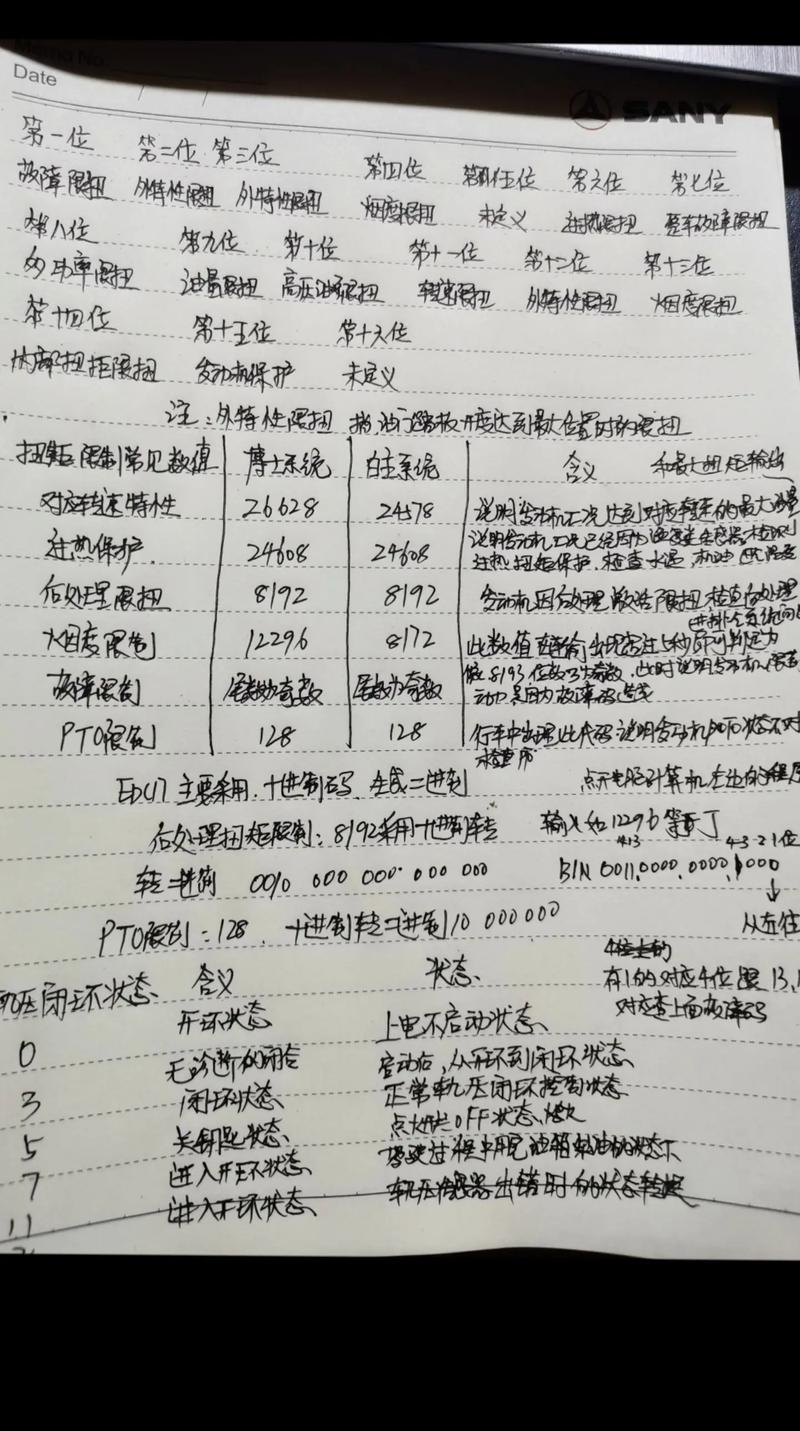 Memo No.
Date / /
SANY
第一位 第二位 第三位 第四位 第五位 第六位 第七位
故障限扭 外特性限扭 外特性限扭 烟度限扭 未定义 过热限扭 整车故障限扭
第八位 第九位 第十位 第十一位 第十二位 第十三位
功率限扭 油量限扭 高压油泵限扭 转速限扭 外特性限扭 烟度限扭
第十四位 第十五位 第十六位
内部扭拒限扭 发动机保护 未定义
注:外特性限扭 指油门踏板开度达到最大位置时的限扭
扭矩限制常见数值 博士系统 自主系统 含义 和最大扭矩输出
对应转速特性 26628 24578 说明发动机工况达到对应转速的最大油量
过热保护 24608 24608 说明发动机工况已经因为温度类传感器检测到
过热扭矩保护.检查水温,机油
后处理限扭 8192 8192 发动机因后处理激活限扭,检查后处理
进排气系统
烟度限制 12296 8172 此数值
故障限制 尾数为奇数 尾数为奇数 8193 位数为奇数,此时说明发动机限制
动 是因为故障码造成
PTO限制 128 128 行车中出现此代码说明发动机 状态不对
检查
EDC17 主要采用十进制码 二进制 点开电脑计算机左边的程序
后处理扭矩限制:8192采用十进制转 输入如12296
413 4321位
转二进制 0010 000 000 000 000 BIN 0011,0000,0000,1000
PTO限制:128 十进制转二进制10 000000 从左往
有1的对应4位跟13,
对应查上面故障码
轨压闭环状态 含义 状态
0 开环状态 上电不启动状态
3 无诊断的闭合 启动后,从开环到闭环状态
5 闭环状态 正常轨压闭环控制状态
7 关钥匙状态 点火开关OFF状态
11 进入开环状态
进入开环状态 轨压传感器出错时的状态